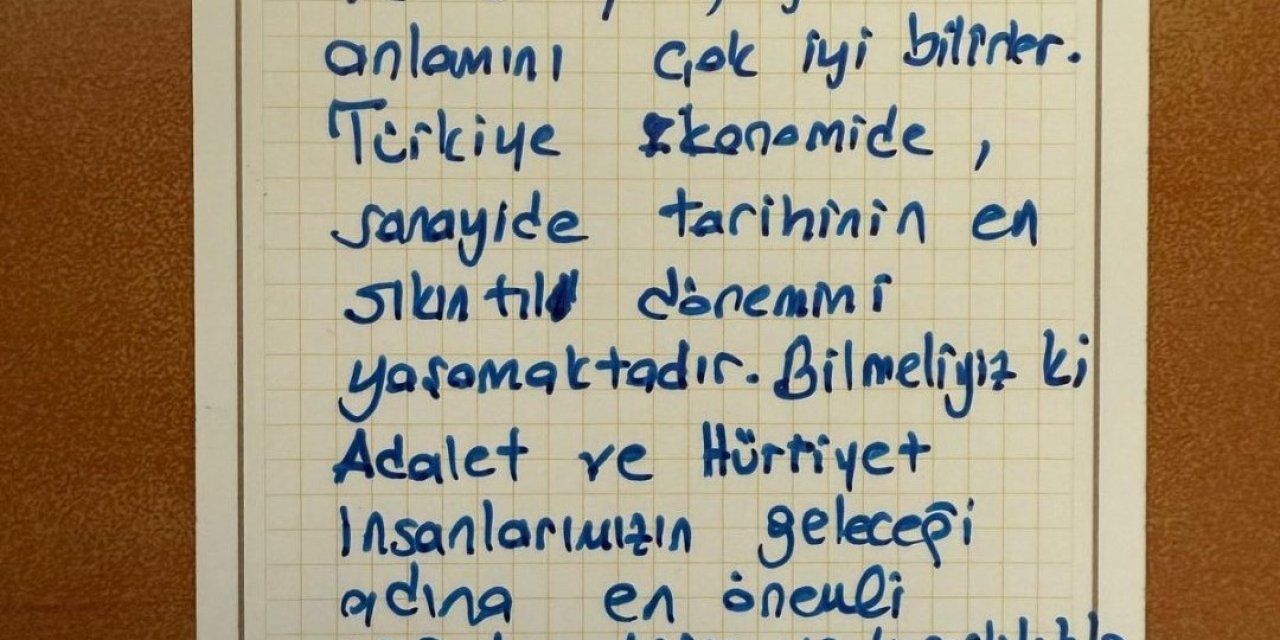 anlamını çok iyi bilirler.
Türkiye Ekonomide,
sanayide tarihinin en
sıkıntılı dönemini
yaşamaktadır. Bilmeliyiz ki
Adalet ve Hürriyet
insanlarımızın geleceği
adına en önemli